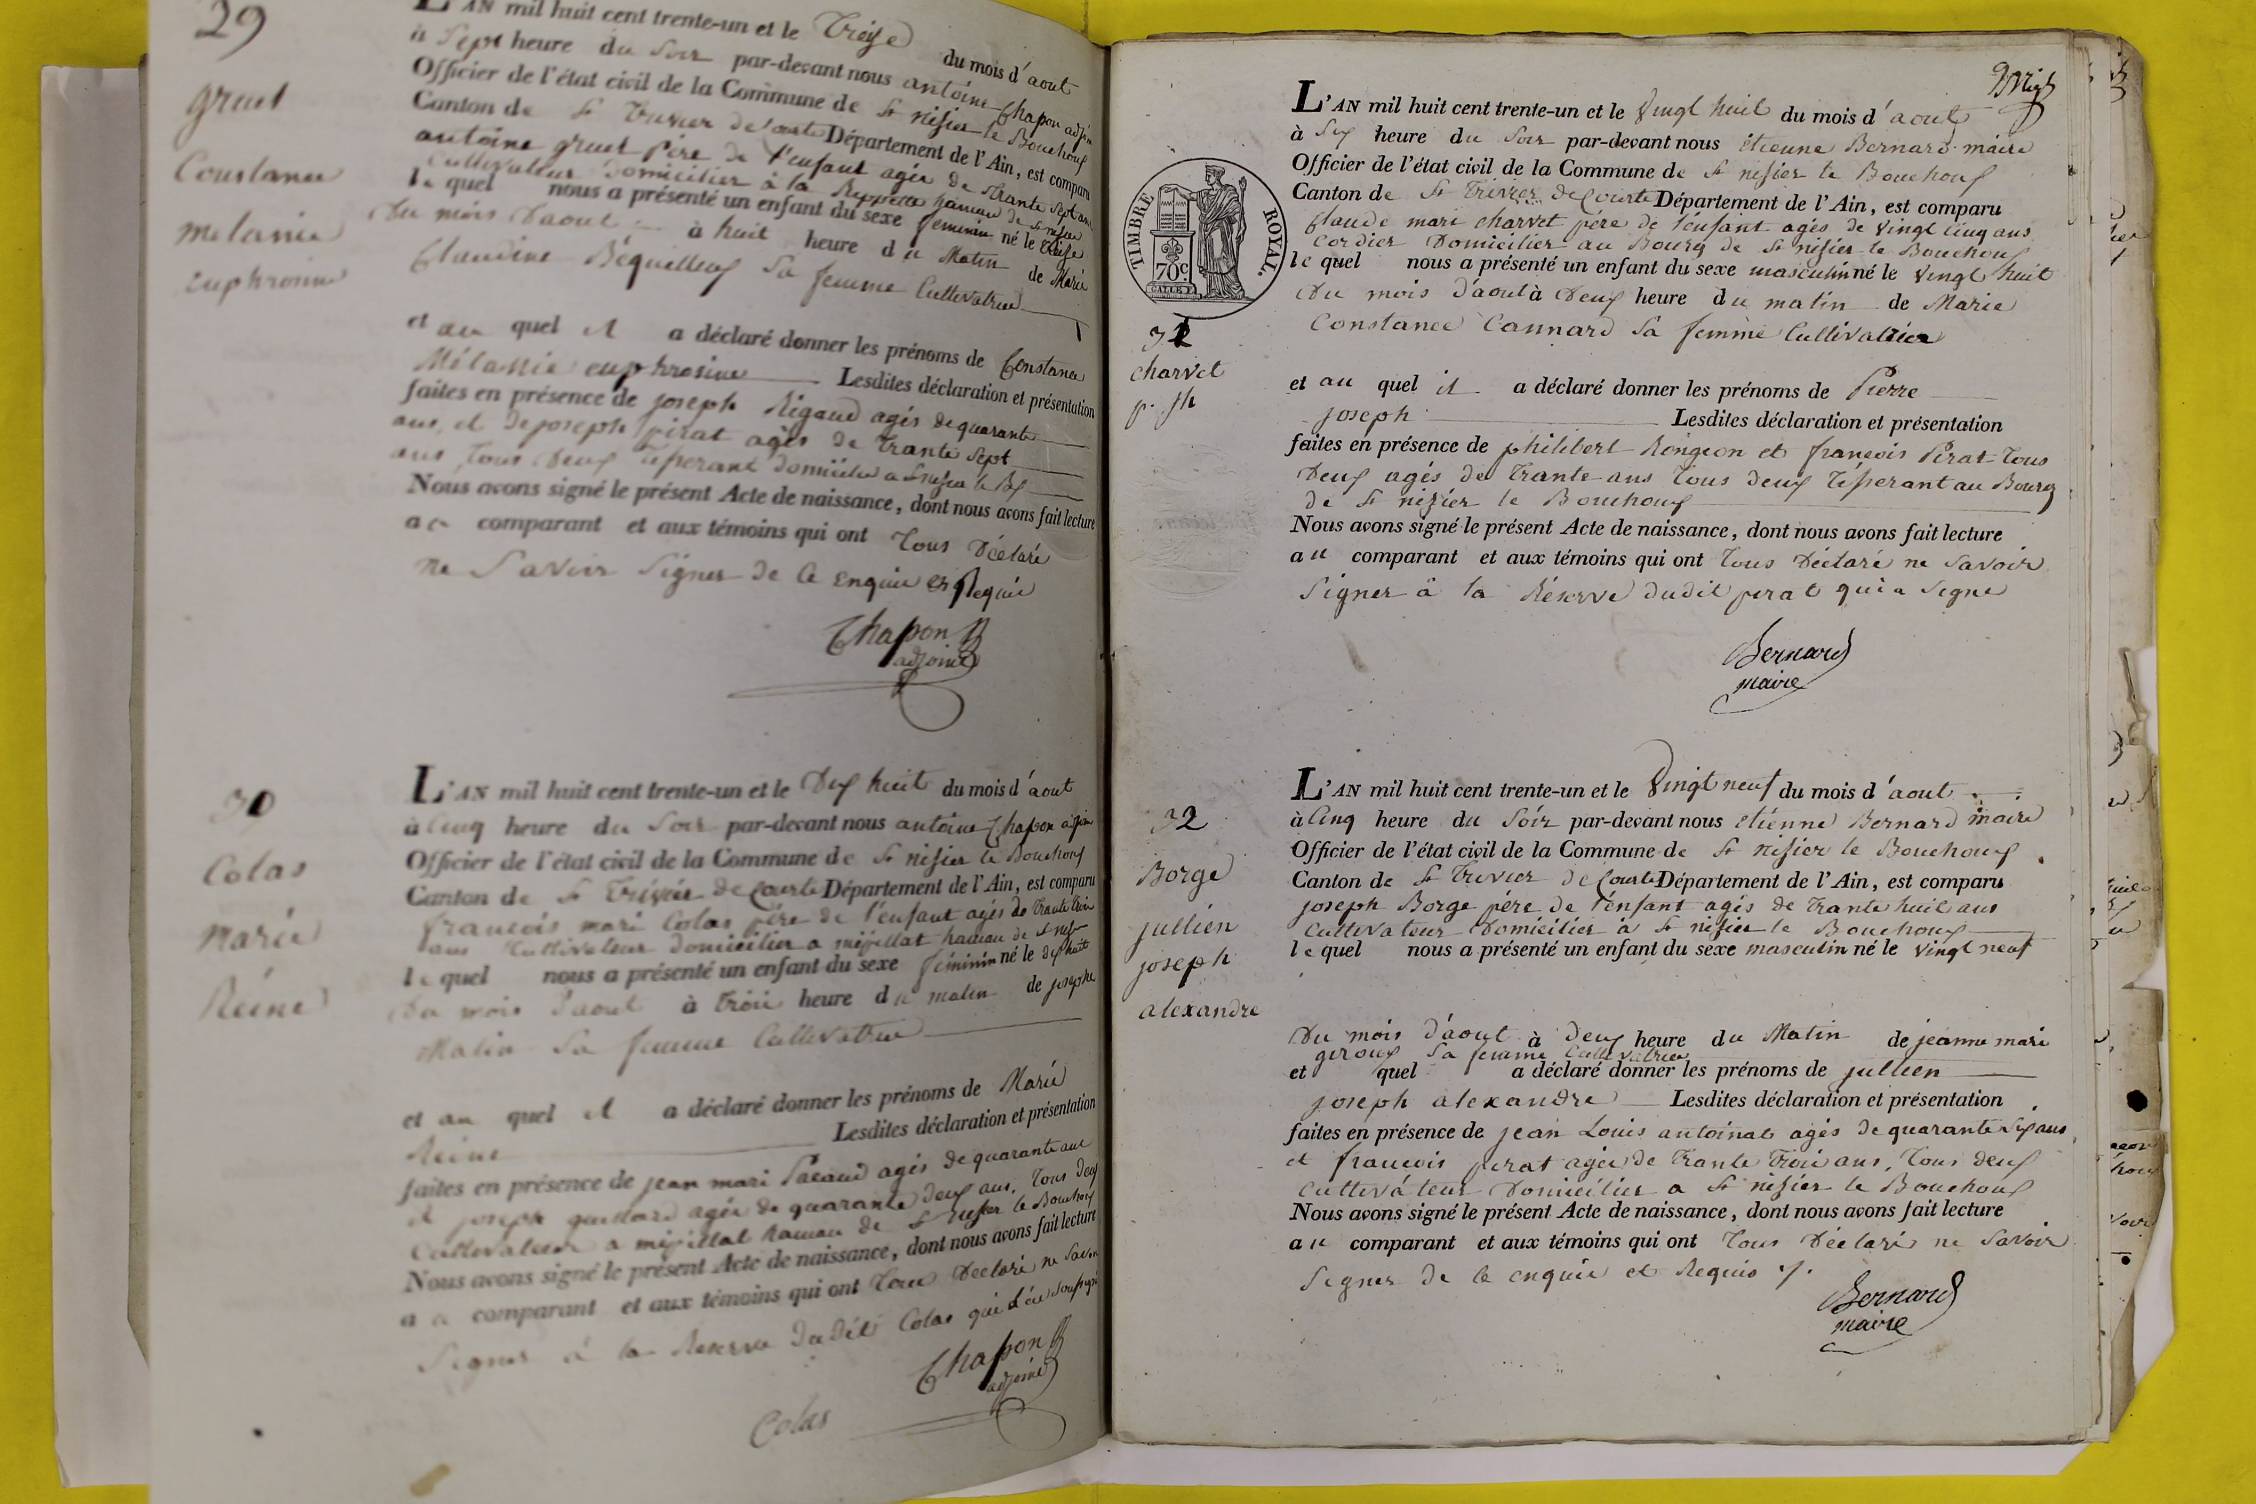 29
gruet
Constance
melanie
euphrosine
L'AN mil huit cent trente-un et le treise du mois d'aout
à Sept heure du Soir par-devant nous antoine Chapon adjoin
Officier de l'état civil de la Commune de St nisier le Bouchoux
Canton de St trivier de Courte Département de l'Ain, est comparu
antoine gruet père de l'enfant agée de trante Sept ans
Cultivateur domicilier à la hameau de St nisier
le quel nous a présenté un enfant du sexe feminin né le treise
Du mois d'aout à huit heure du Matin de Marie
Claudine Sa femme Cultivatrice
et au quel il a déclaré donner les prénoms de Constance
Mélanie euphrosine Lesdites déclaration et présentation
faites en présence de joseph Rigaud agés de quarante
ans, et de joseph pirat agés de trante Sept
ans, tous deux domicilier a St nisier le Bx
Nous avons signé le présent Acte de naissance, dont nous avons fait lecture
au comparant et aux témoins qui ont tous Déclaré
ne Savoir Signer de Ce Enquie et Requie
Chapon
adjoint
30
Colas
Marie
Reine
L'AN mil huit cent trente-un et le Dix huit du mois d'aout
à Cinq heure du Soir par-devant nous antoine Chapon adjoin
Officier de l'état civil de la Commune de St nisier le Bouchoux
Canton de St Trivier de Courte Département de l'Ain, est comparu
francois mari Colas père de l'enfant agés de trante trois
ans Cultivateur domicilier a hameau de St nisier
le quel nous a présenté un enfant du sexe féminin né le dix huit
Du mois d'aout à trois heure du matin de josephe
Matin Sa femme Cultivatrice
et au quel il a déclaré donner les prénoms de Marie
Reine Lesdites déclaration et présentation
faites en présence de jean mari Pacaud agés de quarante ans
et joseph agée de quarante deux ans, tous deux
Cultivateur a hameau de St nisier le Bouchoux
Nous avons signé le présent Acte de naissance, dont nous avons fait lecture
au comparant et aux témoins qui ont tous Déclaré ne Savoir
Signer à la Reserve du dit Colas qui
Chapon
adjoint
Colas
TIMBRE ROYAL.
70c.
31
charvet
p. jh
L'AN mil huit cent trente-un et le Vingt huit du mois d'aout
à Six heure du Soir par-devant nous étienne Bernard maire
Officier de l'état civil de la Commune de St nisier le Bouchoux
Canton de St Trivier de Courte Département de l'Ain, est comparu
Claude mari charvet père de l'enfant agés de Vingt Cinq ans
Cordier Domicilier au Bourg de St nisier le Bouchoux
le quel nous a présenté un enfant du sexe masculin né le Vingt huit
Du mois d'aout à Deux heure du matin de Marie
Constance Cannard Sa femme Cultivatrice
et au quel il a déclaré donner les prénoms de Pierre
joseph Lesdites déclaration et présentation
faites en présence de philibert Rongeon et francois Pirat Tous
Deux agés de trante ans Tous deux Tisserant au Bourg
de St nizier le Bouchoux
Nous avons signé le présent Acte de naissance, dont nous avons fait lecture
au comparant et aux témoins qui ont Tous Déclaré ne Savoir
Signer à la Réserve dudit pirat qui a Signe
Bernard
maire
32
Borge
jullien
joseph
alexandre
L'AN mil huit cent trente-un et le Vingt neuf du mois d'aout
à Cinq heure du Soir par-devant nous etienne Bernard maire
Officier de l'état civil de la Commune de St nisier le Bouchoux
Canton de St Trivier de Courte Département de l'Ain, est comparu
joseph Borge père de l'enfant agés de trante huit ans
Cultivateur Domicilier à St nisier le Bouchoux
le quel nous a présenté un enfant du sexe masculin né le Vingt neuf
Du mois d'aout à Deux heure du Matin de jeanne mari
giroux Sa femme Cultivatrice
et quel a déclaré donner les prénoms de jullien
joseph alexandre Lesdites déclaration et présentation
faites en présence de jean Louis antoinat agés de quarante Six ans
et francois pirat agée de trante trois ans, Tous deux
Cultivateur Domicilier a St nisier le Bouchoux
Nous avons signé le présent Acte de naissance, dont nous avons fait lecture
au comparant et aux témoins qui ont Tous Déclaré ne Savoir
Signer de Ce enquie et Requis
Bernard
maire